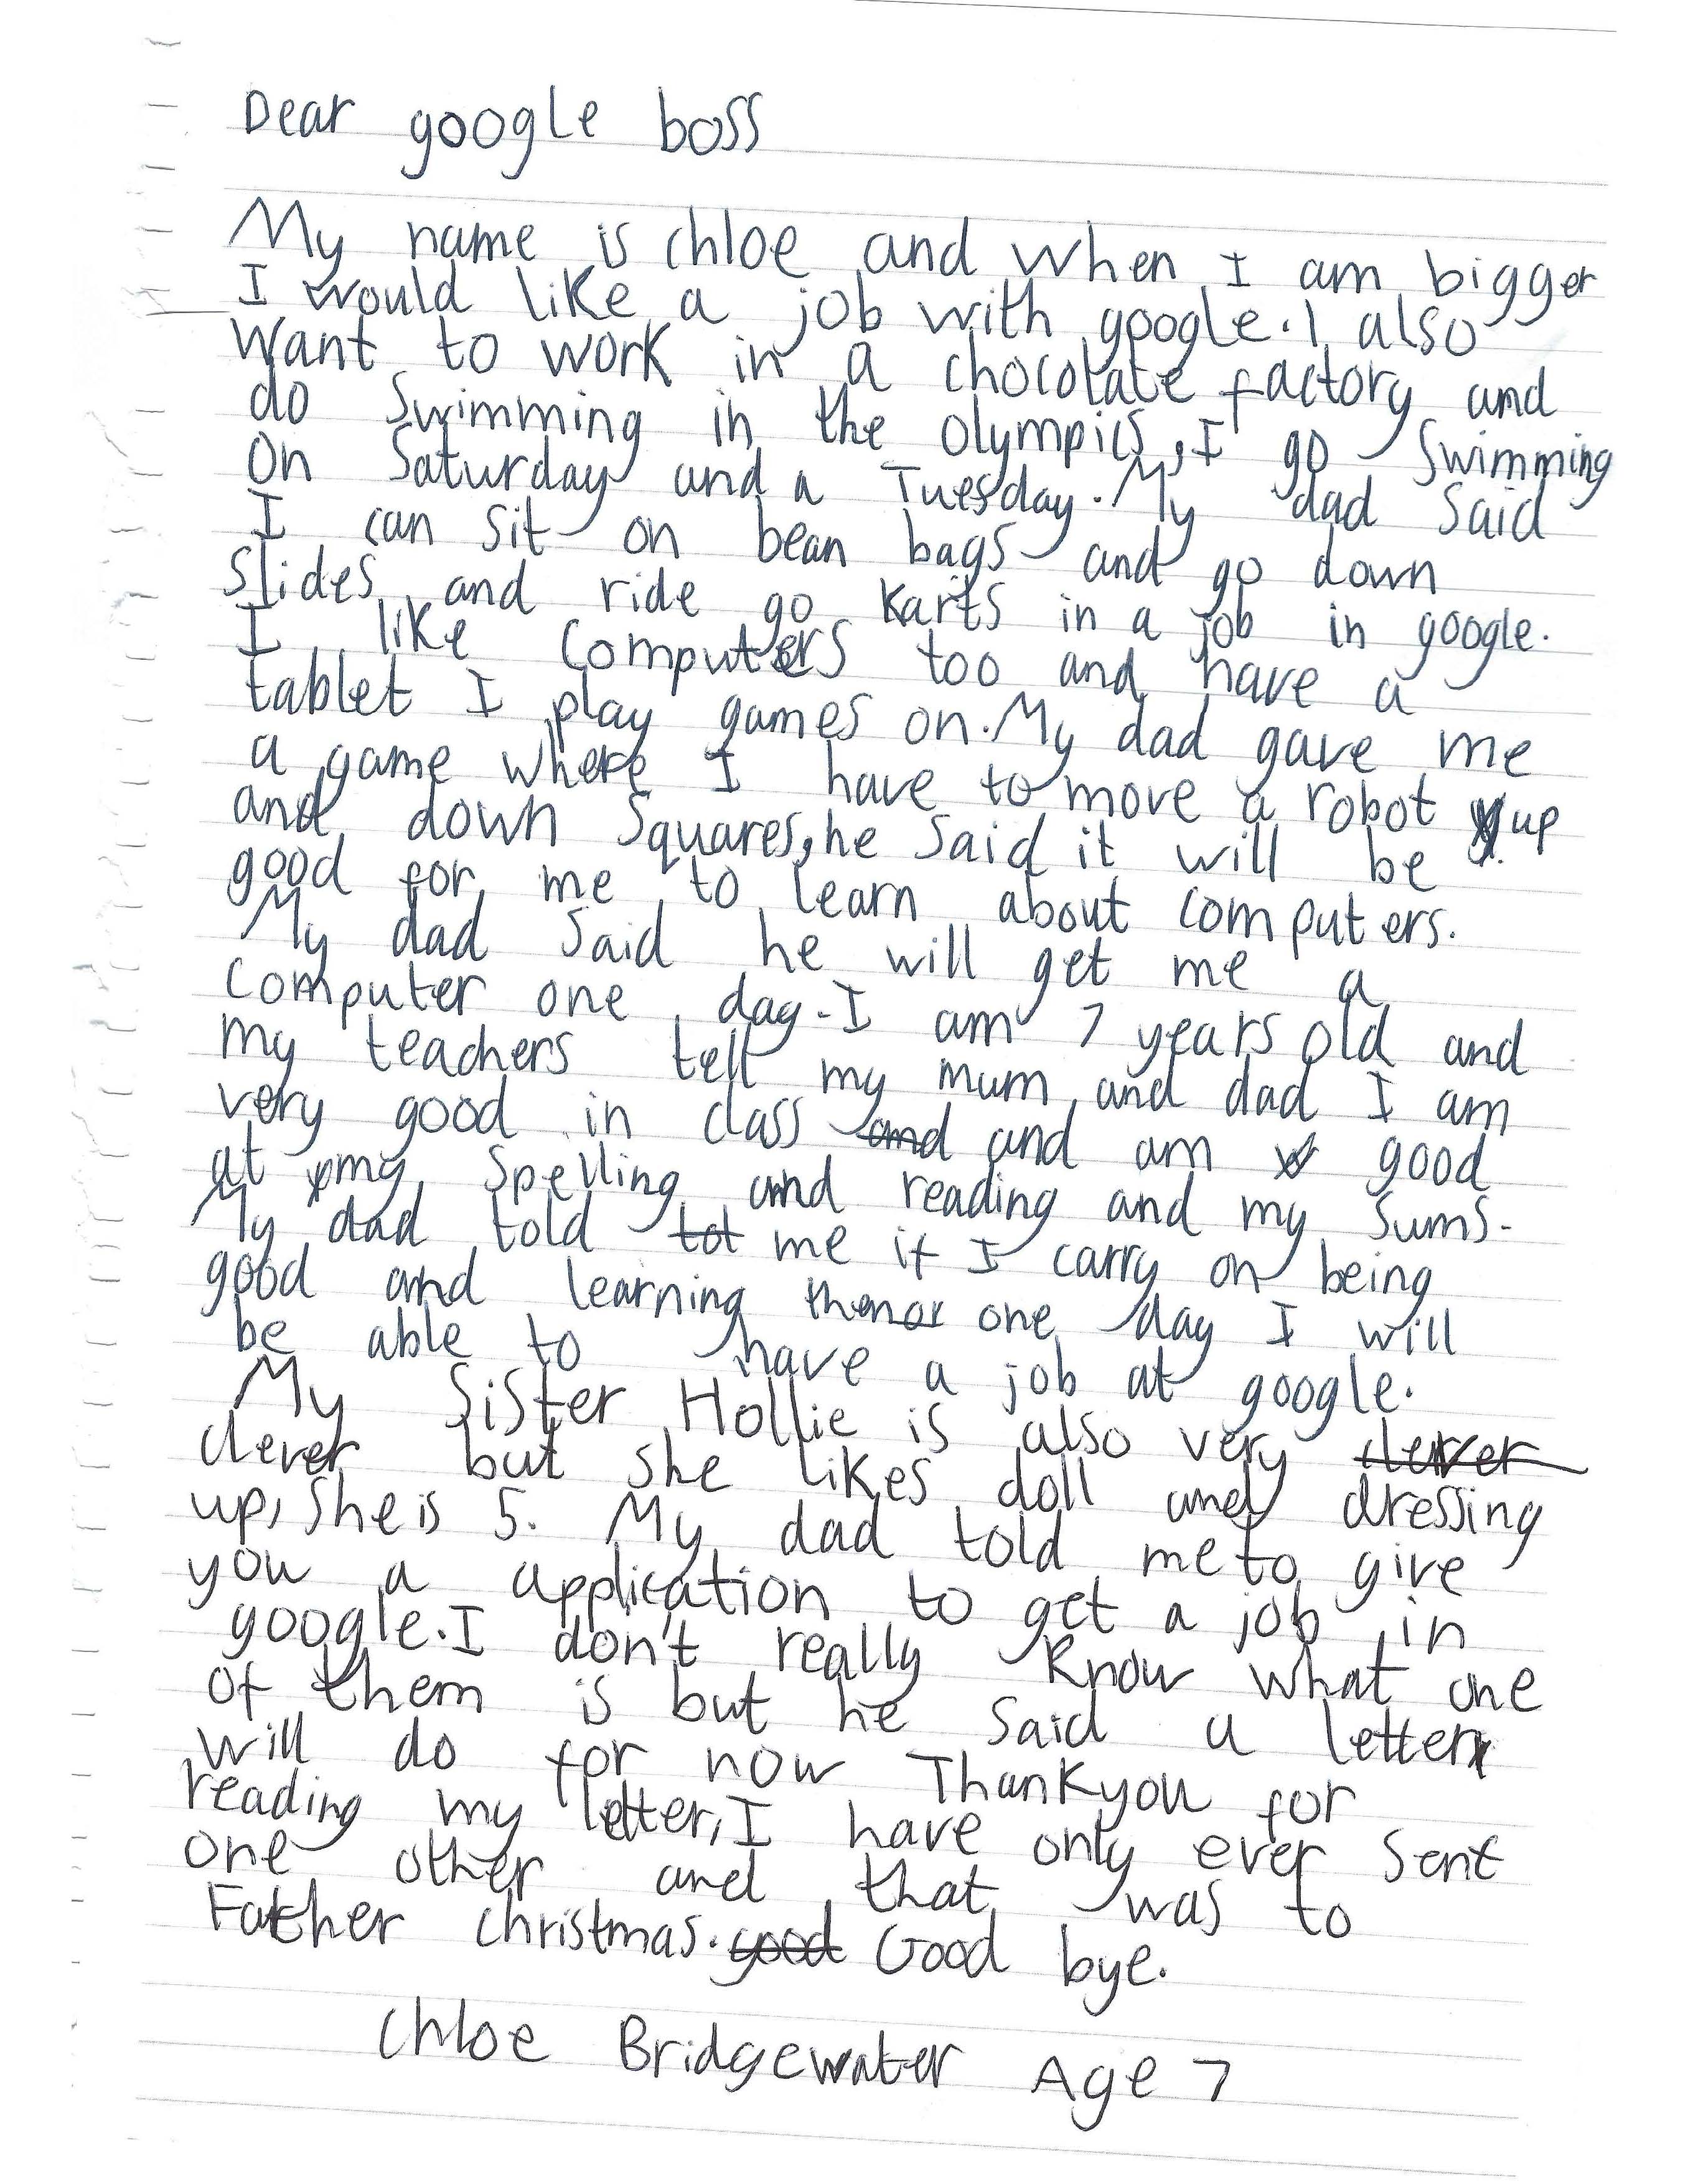 Dear google boss
My name is chloe and when I am bigger
I would like a job with google. I also
want to work in a chocolate factory and
do swimming in the olympics, I go swimming
on Saturday and a Tuesday. My dad said
I can sit on bean bags and go down
slides and ride go karts in a job in google.
I like computers too and have a
tablet I play games on. My dad gave me
a game where I have to move a robot up
and down squares, he said it will be
good for me to learn about computers.
My dad said he will get me a
computer one day. I am 7 years old and
my teachers tell my mum and dad I am
very good in class and and am good
at my spelling and reading and my sums.
My dad told tot me if I carry on being
good and learning then one day I will
be able to have a job at google.
My sister Hollie is also very clever
clever but she likes doll and dressing
up, she is 5. My dad told me to give
you a application to get a job in
google. I don't really know what one
of them is but he said a letter
will do for now Thankyou for
reading my letter, I have only ever sent
one other and that was to
Father christmas. good Good bye.
Chloe Bridgewater Age 7